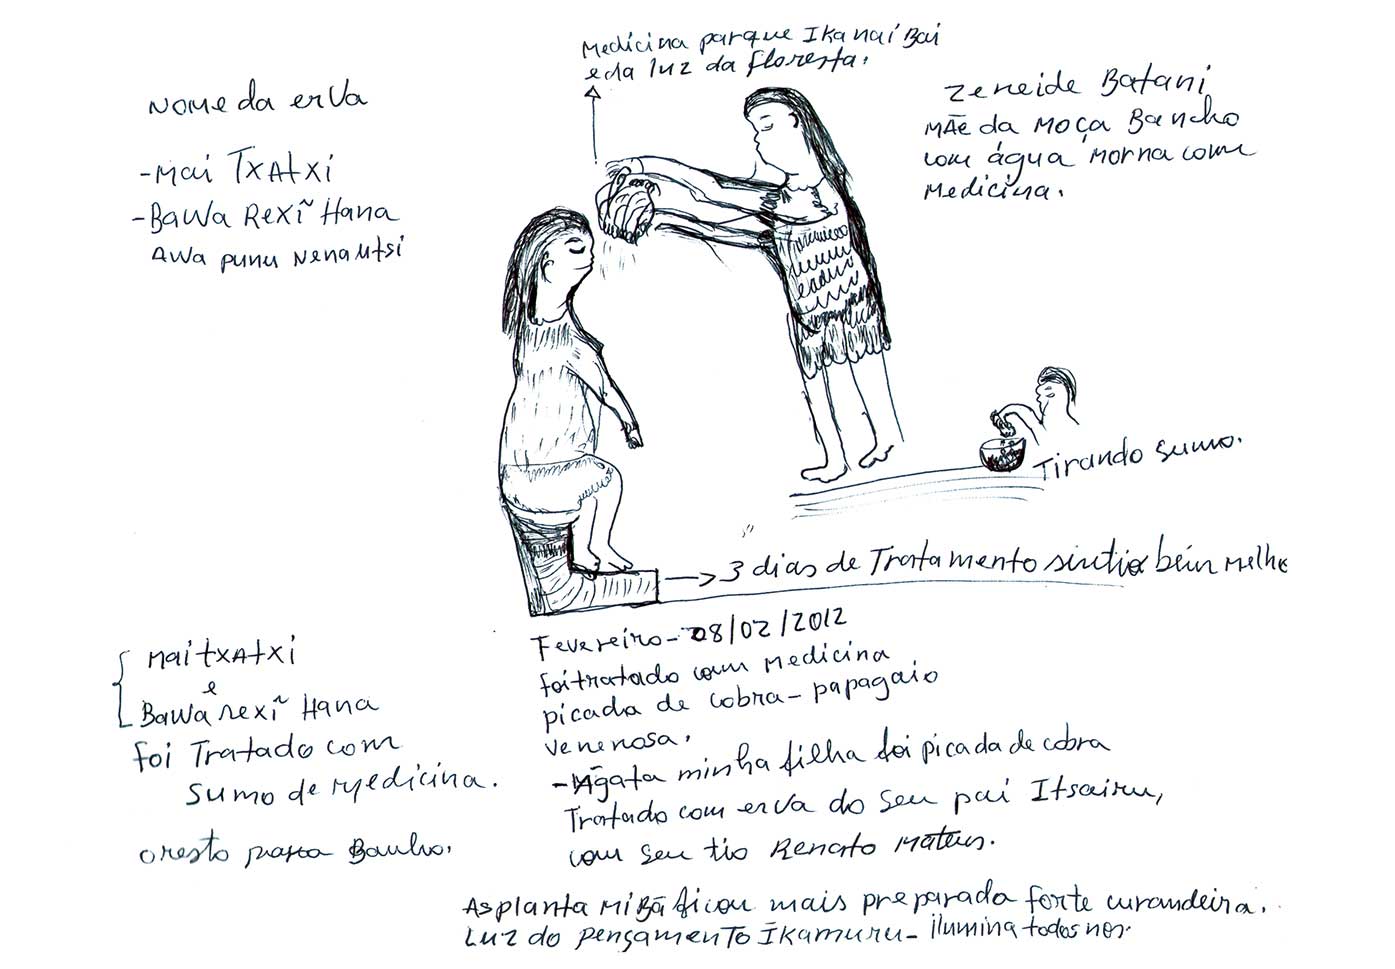 Medicina parque Ikanai Bai
e da luz da floresta.
Nome da erva
- Mai Txatxi
- Bawa Rexĩ Hana
Awa punu nenautsi
Zeneide Batani
Mãe da moça Bancho
com água morna com
medicina.
Tirando sumo.
3 dias de Tratamento sintia bein melho
Mai txatxi
e
Bawa rexĩ Hana
foi Tratado com
sumo de medicina.
o resto para Banho.
Fevereiro - 08/02/2012
foi tratado com medicina
picada de cobra - papagaio
venenosa.
- Ágata minha filha foi picada de cobra
Tratado com erva do seu pai Itsairu,
com seu tio Renato Mateus.
As planta Mibã ficou mais preparada forte curandeira.
Luz do pensamento Ĩkamuru - ilumina todos nos.